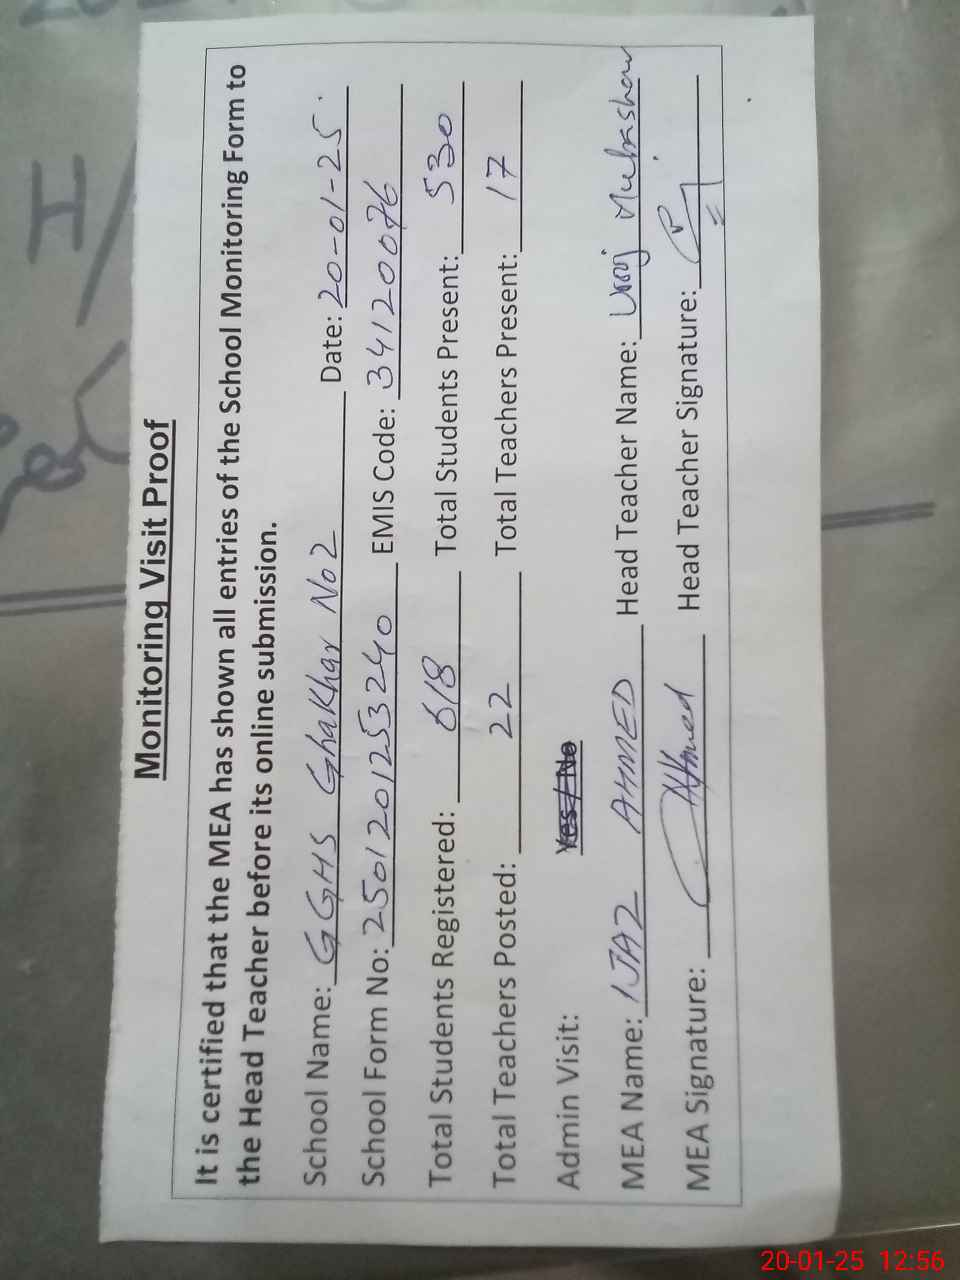 Monitoring Visit Proof
It is certified that the MEA has shown all entries of the School Monitoring Form to
the Head Teacher before its online submission.
School Name: GGHS Ghakhar No2 Date: 20-01-25
School Form No: 2501201253240 EMIS Code: 34120076
Total Students Registered: 618 Total Students Present: 530
Total Teachers Posted: 22 Total Teachers Present: 17
Admin Visit: Yes/No
MEA Name: IJAZ AHMED Head Teacher Name: Urooj Mubashar
MEA Signature: Ahmed Head Teacher Signature:
H/
20-01-25 12:56